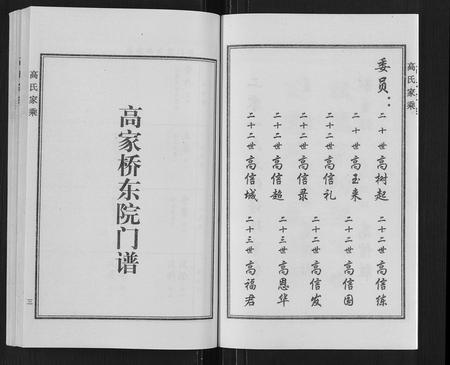 高氏家乘
委员：
二十世高树起
二十世高玉来
二十二世高信礼
二十二世高信录
二十二世高信超
二十二世高信城
二十二世高信练
二十二世高信国
二十二世高信发
二十三世高恩华
二十三世高福君
高家桥东院门谱
高氏家乘
三